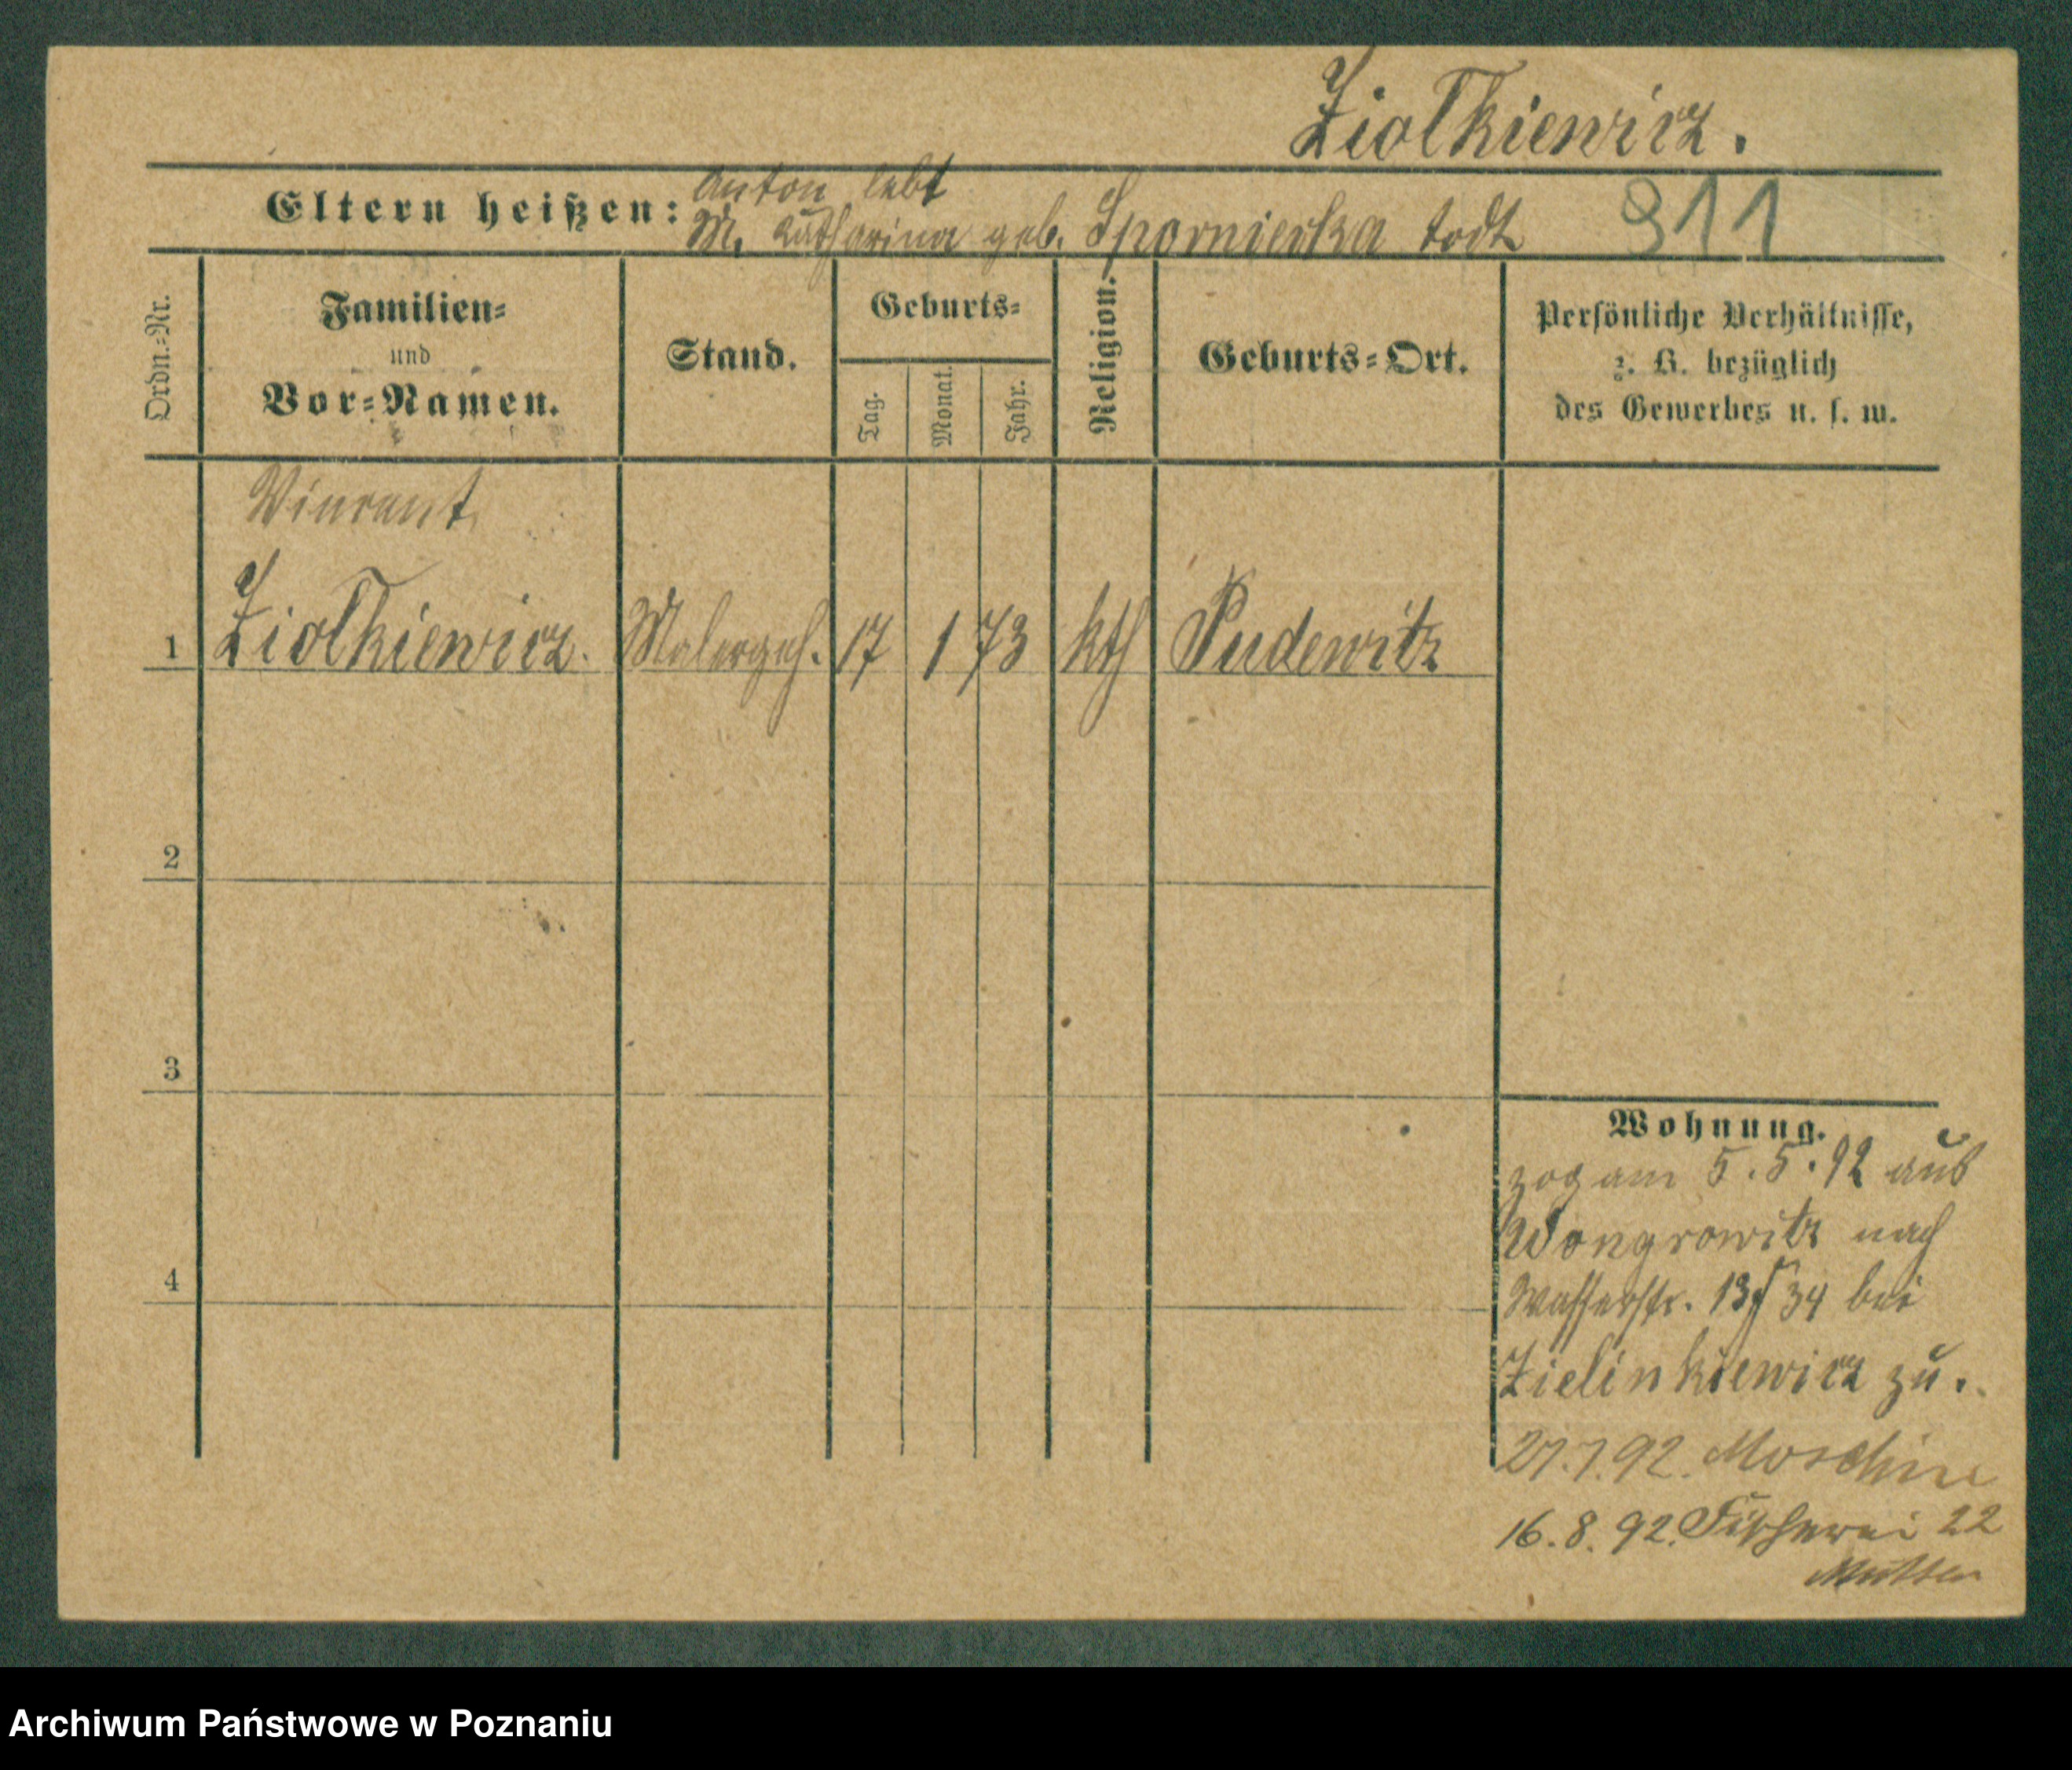 Ziolkiewicz.
Eltern heißen: Anton lebt
M. Katharina geb. Spornierka todt 911
Ordn.-Nr.
Familien-
und
Vor-Namen.
Stand.
Geburts-
Tag.
Monat.
Jahr.
Religion.
Geburts-Ort.
Persönliche Verhältnisse,
z. B. bezüglich
des Gewerbes u. s. w.
Vincent
1 Ziolkiewicz. Malergeh. 17 1 73 kth Pudewitz
2
3
4
Wohnung.
zog am 5.5.92 aus
Wongrowitz nach
Wasserstr. 34 bei
Zielinkiewicz zu.
27.7.92. Moschin
16.8.92. Fischerei 22
Archiwum Państwowe w Poznaniu